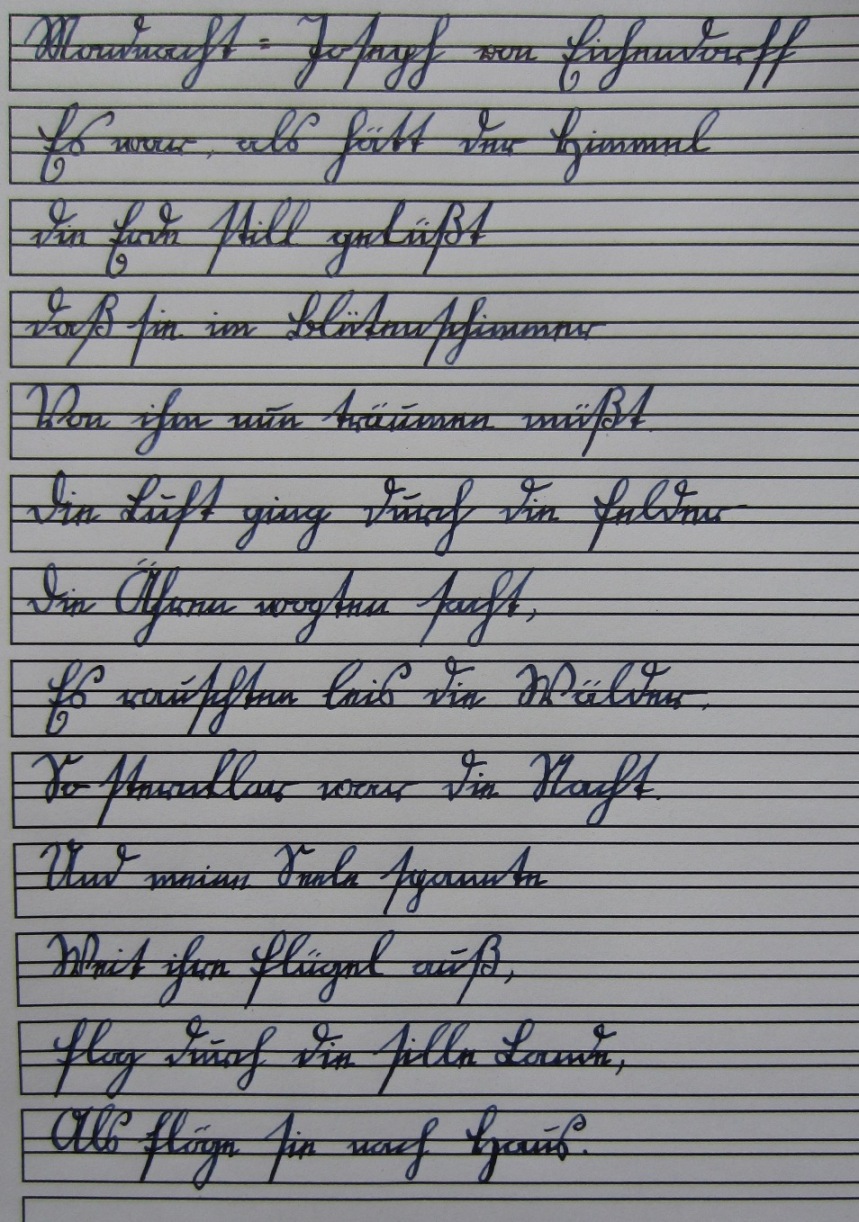 Mondnacht = Joseph von Eichendorff
Es war, als hätt der Himmel
die Erde still geküßt
daß sie im Blütenschimmer
Von ihm nun träumen müßt.
Die Luft ging durch die Felder
Die Ähren wogten sacht,
Es rauschten leis die Wälder,
So sternklar war die Nacht.
Und meine Seele spannte
Weit ihre Flügel auß,
Flog durch die sille Lande,
Als flöge sie nach Haus.